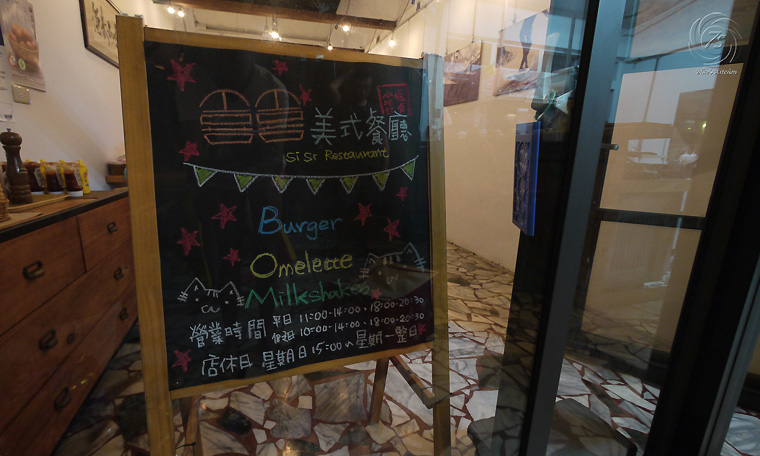 喜喜 美式餐廳
SiSi Restaurant
Burger
Omelette
Milkshakes
營業時間 平日 11:00-14:00、18:00-20:30
假日 10:00-14:00、18:00-20:30
店休日 星期日 15:00~星期一整日